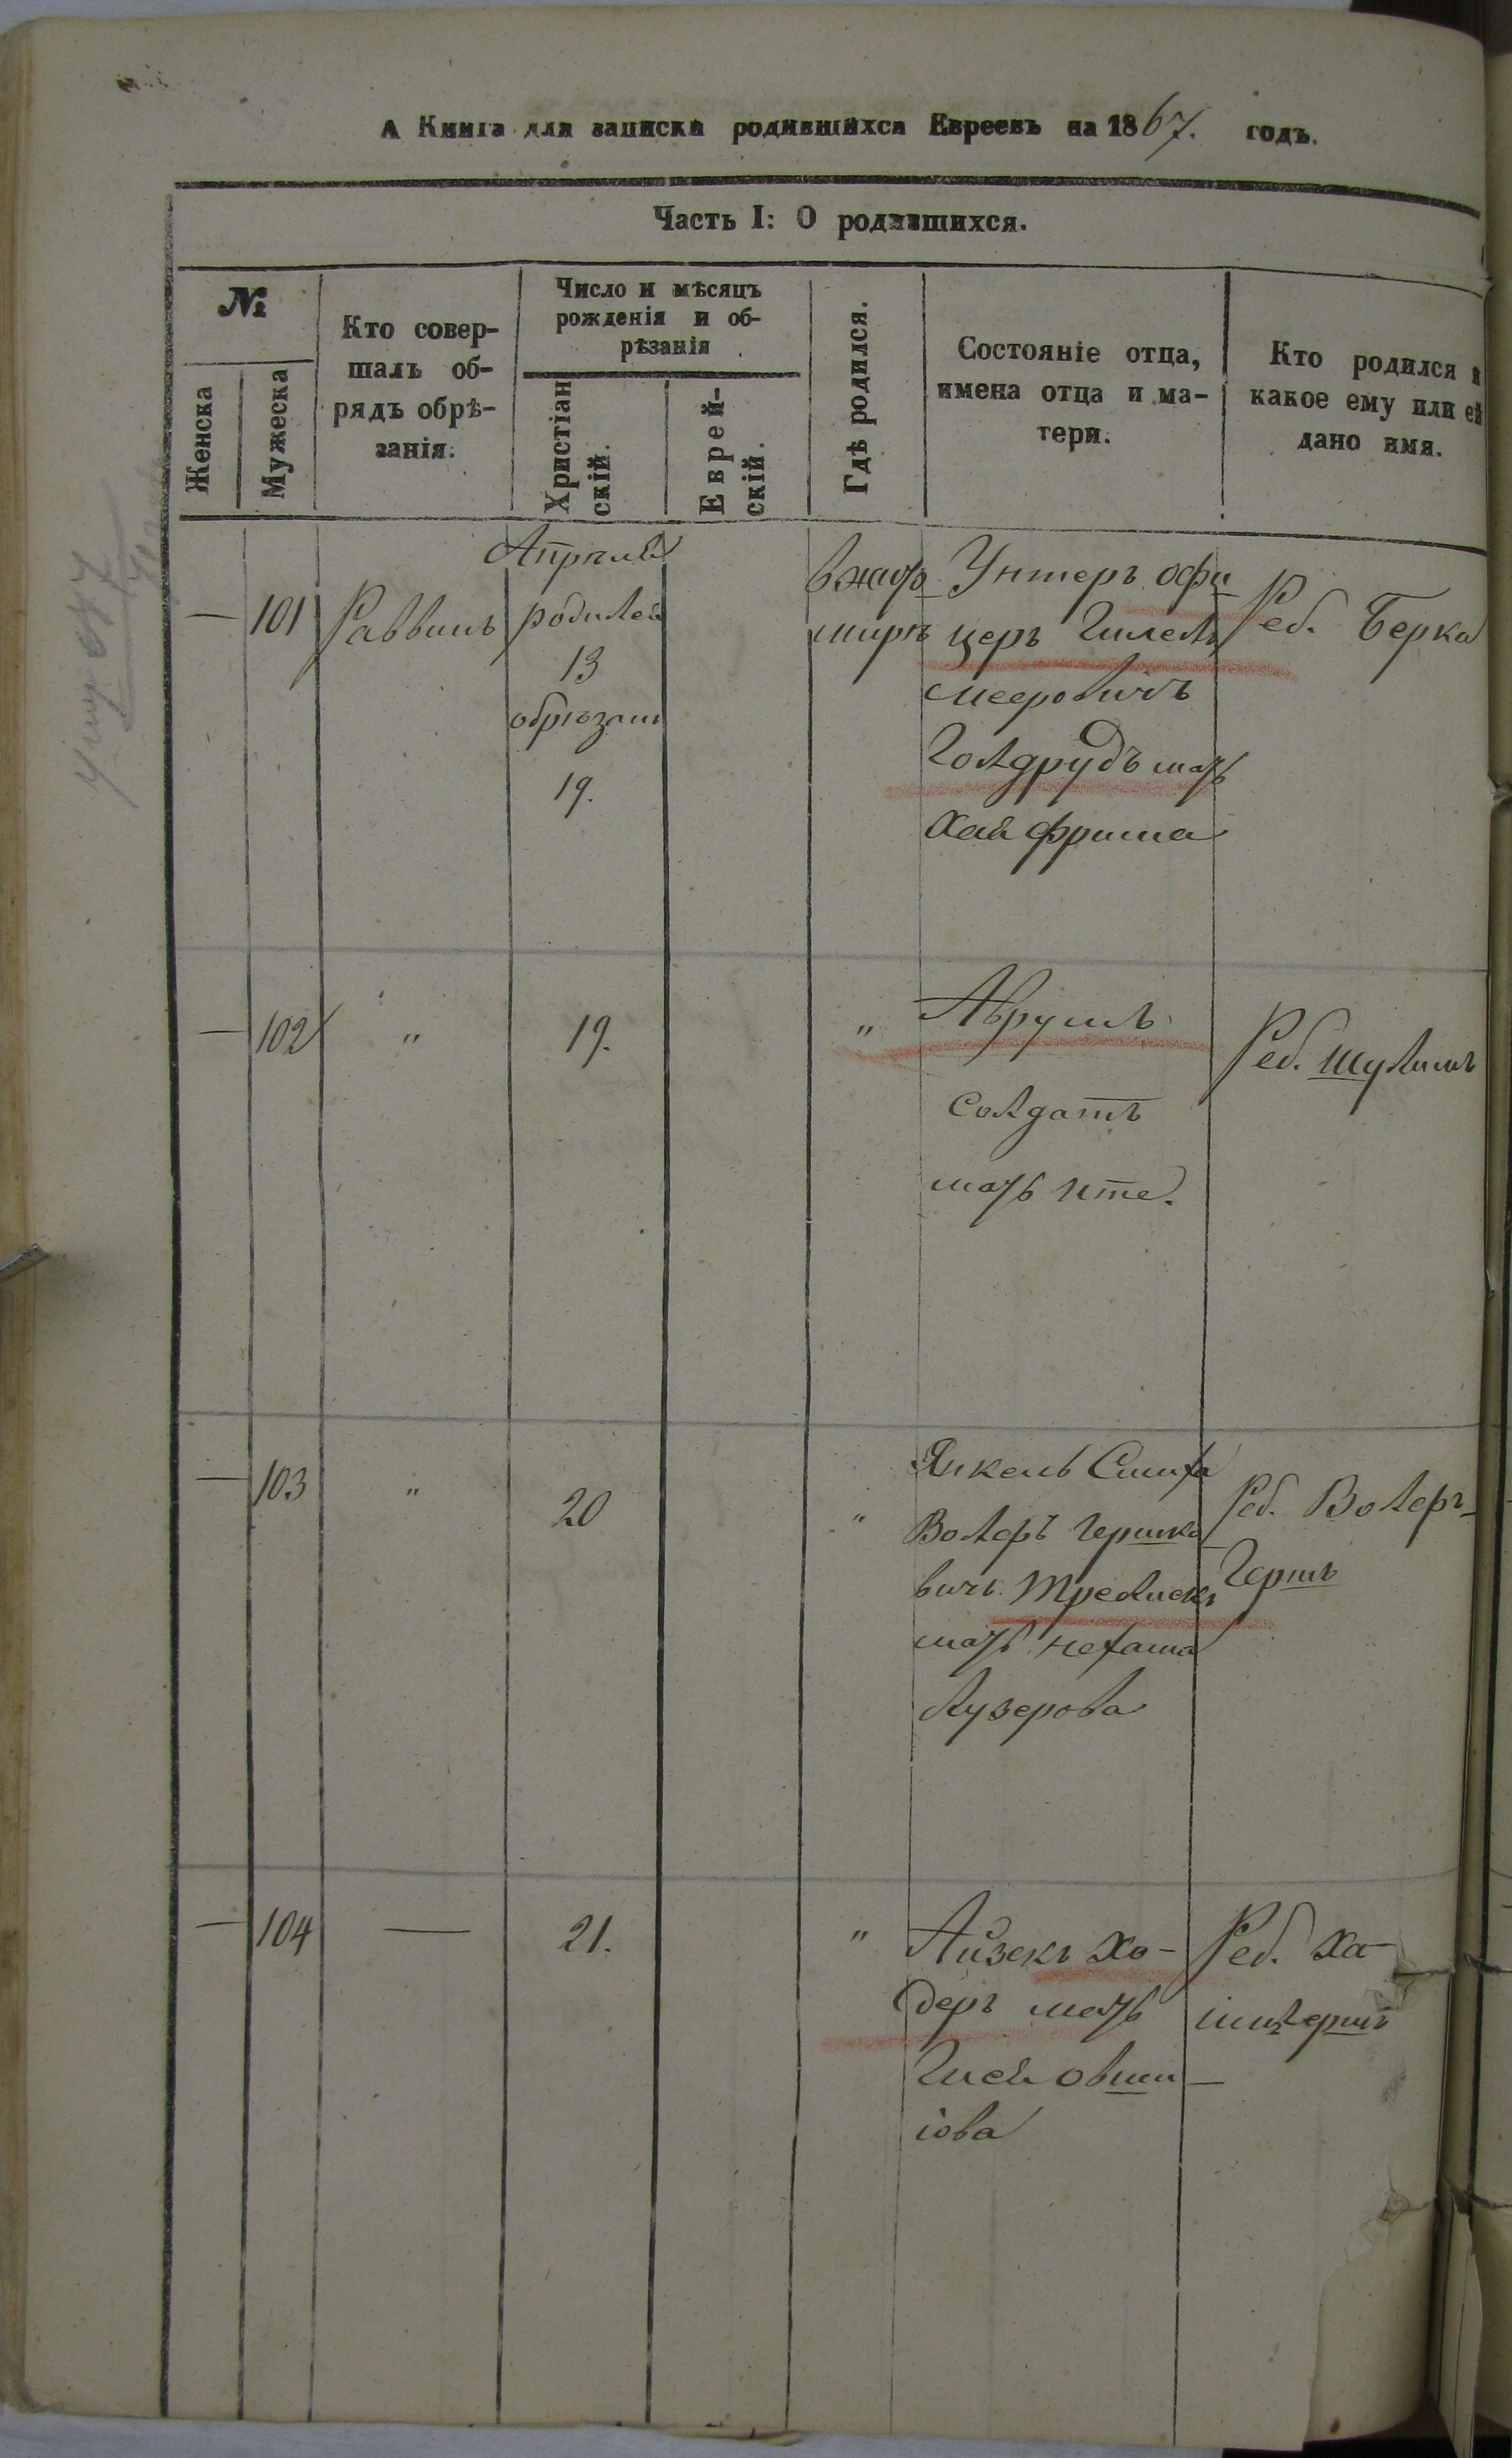 А Книга для записки родившихся Евреевъ на 1867. годъ.
Часть I: О родившихся.
№
Женска
Мужеска
Кто совер-
шалъ об-
рядъ обрѣ-
занія.
Число и мѣсяцъ
рожденія и об-
рѣзанія
Христіан
скій.
Еврей-
скій.
Гдѣ родился.
Состояніе отца,
имена отца и ма-
тери.
Кто родился и
какое ему или ей
дано имя.
Апрѣля
— 101 Раввинъ
родился
13
обрѣзанъ
19.
в жито
мирѣ
Унтеръ офи
церъ Гилель
Мееровичъ
Голдрудъ мать
Хая Фрима
Реб. Берка
— 102 " 19. "
Аврумъ
Солдатъ
мать Ите.
Реб. Шулимъ
— 103 " 20 "
Янкель Симха
Волфъ Гершко
вичъ
мать Нехама
Лузерова
Реб. Волфъ-
Гершъ
— 104 — 21. "
Айзекъ Хо-
деръ мать
Гися Овши-
іова
Реб. Ха-